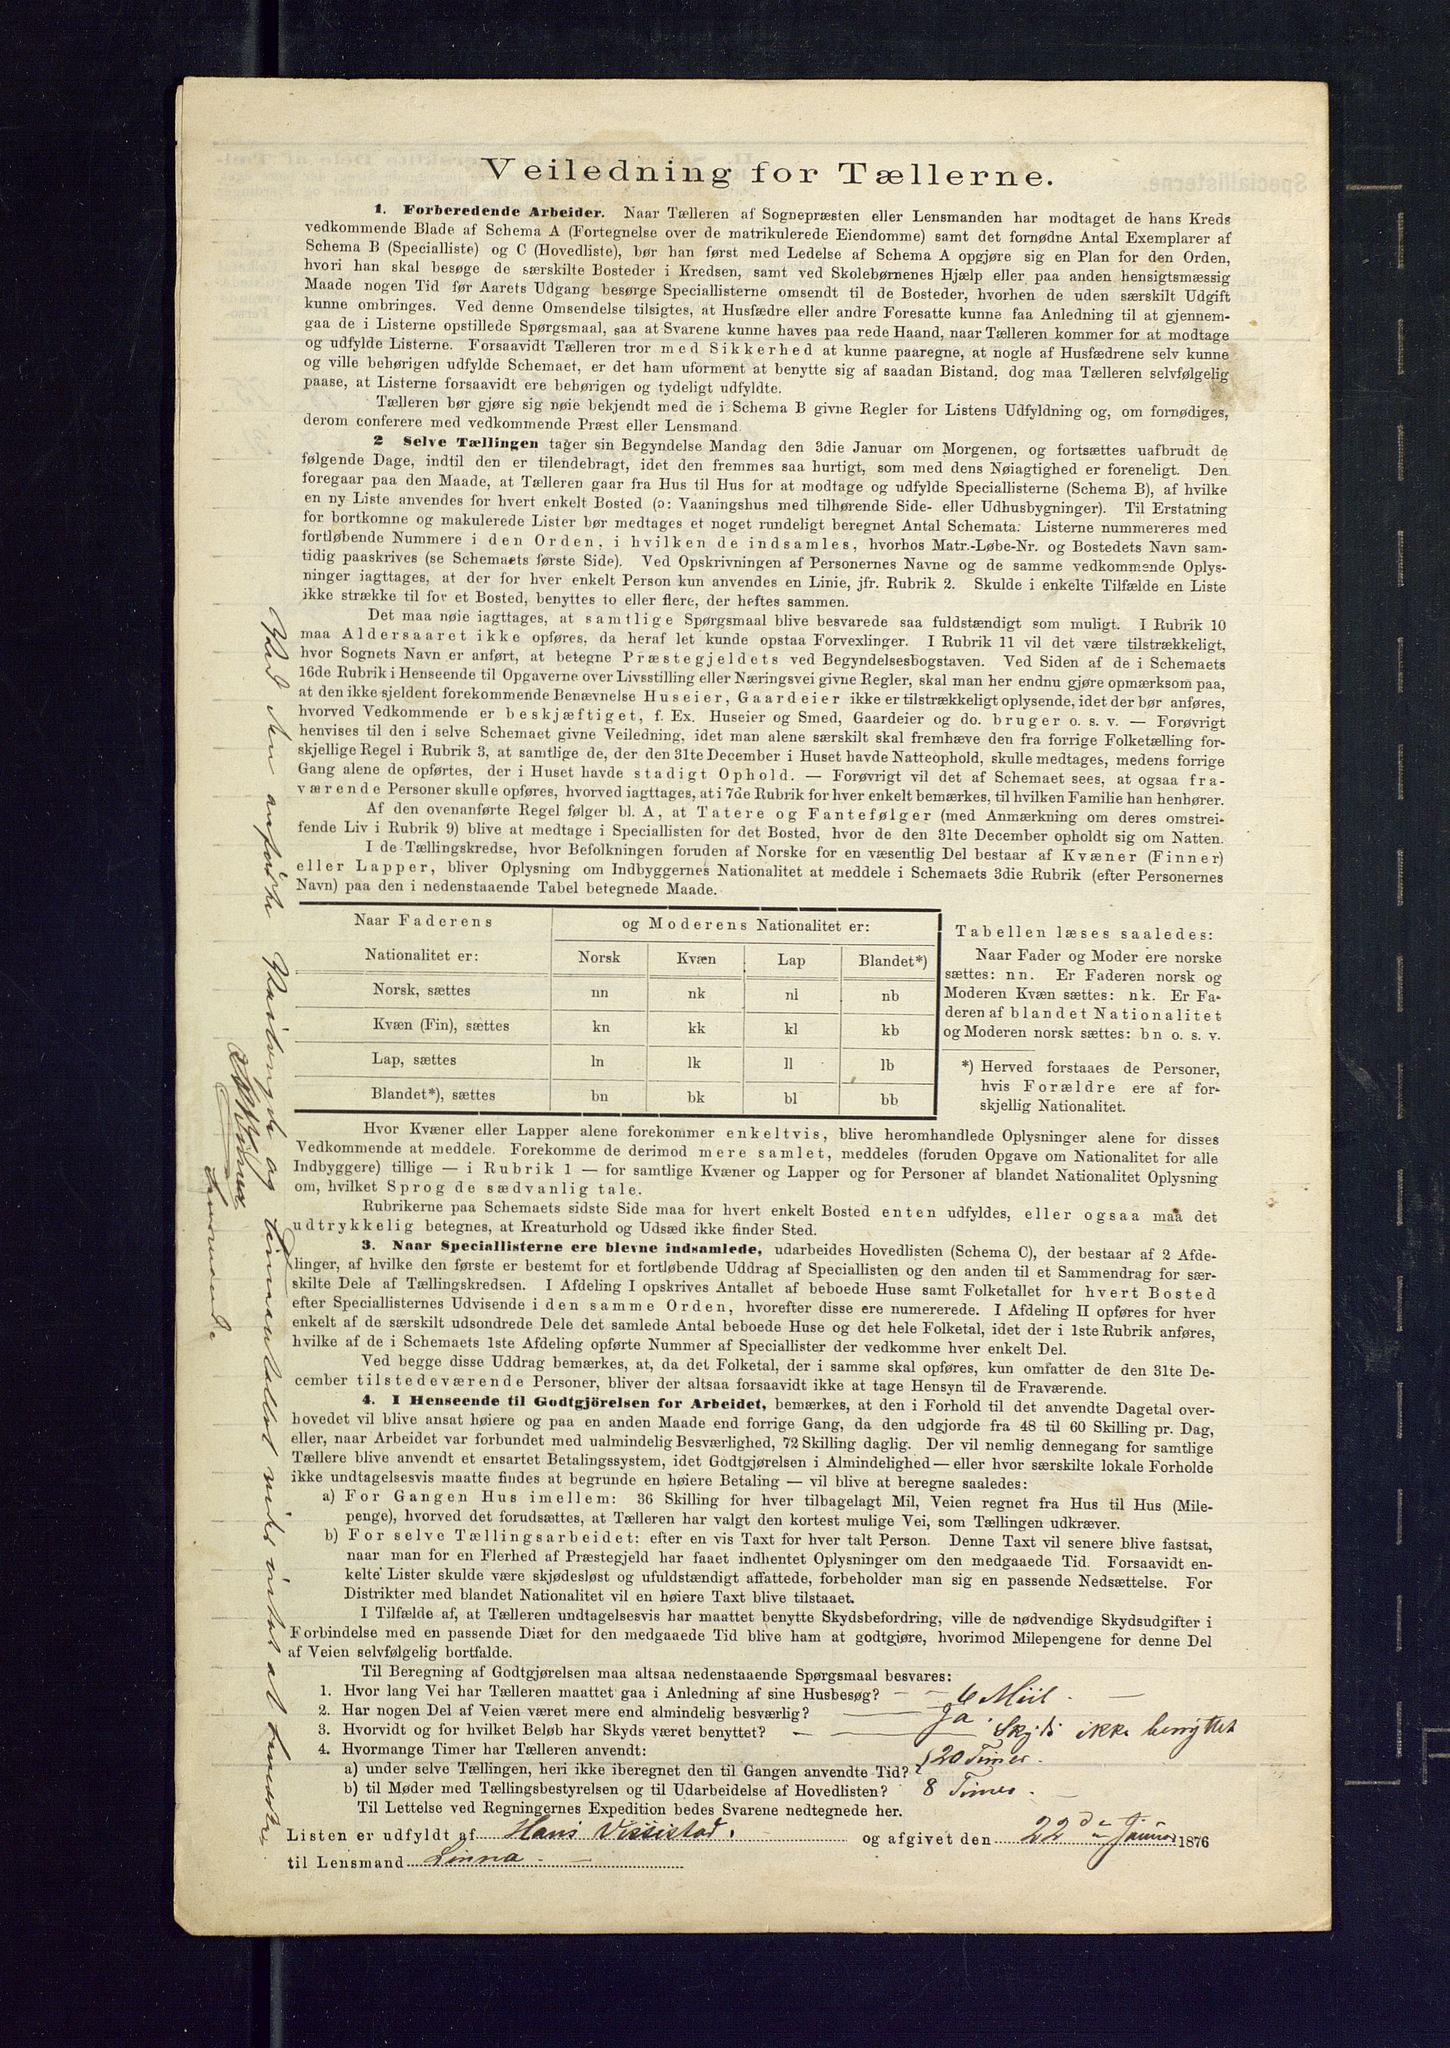 Veiledning for Tællerne.
1. Forberedende Arbeider. Naar Tælleren af Sognepræsten eller Lensmanden har modtaget de hans Kreds
vedkommende Blade af Schema A (Fortegnelse over de matrikulerede Eiendomme) samt det fornødne Antal Exemplarer af
Schema B (Specialliste) og C (Hovedliste), bør han først med Ledelse af Schema A opgjøre sig en Plan for den Orden,
hvori han skal besøge de særskilte Bosteder i Kredsen, samt ved Skolebørnenes Hjælp eller paa anden hensigtsmæssig
Maade nogen Tid før Aarets Udgang besørge Speciallisterne omsendt til de Bosteder, hvorhen de uden særskilt Udgift
kunne ombringes. Ved denne Omsendelse tilsigtes, at Husfædre eller andre Foresatte kunne faa Anledning til at gjennem-
gaa de i Listerne opstillede Spørgsmaal, saa at Svarene kunne haves paa rede Haand, naar Tælleren kommer for at modtage
og udfylde Listerne. Forsaavidt Tælleren tror med Sikkerhed at kunne paaregne, at nogle af Husfædrene selv kunne
og ville behørigen udfylde Schemaet, er det ham uforment at benytte sig af saadan Bistand, dog maa Tælleren selvfølgelig
paase, at Listerne forsaavidt ere behørigen og tydeligt udfyldte.
Tælleren bør gjøre sig nøie bekjendt med de i Schema B givne Regler for Listens Udfyldning og, om fornødiges,
derom conferere med vedkommende Præst eller Lensmand.
2 Selve Tællingen tager sin Begyndelse Mandag den 3die Januar om Morgenen, og fortsættes uafbrudt de
følgende Dage, indtil den er tilendebragt, idet den fremmes saa hurtigt, som med dens Nøiagtighed er foreneligt. Den
foregaar paa den Maade, at Tælleren gaar fra Hus til Hus for at modtage og udfylde Speciallisterne (Schema B), af hvilke
en ny Liste anvendes for hvert enkelt Bosted (ɔ: Vaaningshus med tilhørende Side- eller Udhusbygninger). Til Erstatning
for bortkomne og makulerede Lister bør medtages et noget rundeligt beregnet Antal Schemata. Listerne nummereres med
fortløbende Nummere i den Orden, i hvilken de indsamles, hvorhos Matr.-Løbe-Nr. og Bostedets Navn sam-
tidig paaskrives (se Schemaets første Side). Ved Opskrivningen af Personernes Navne og de samme vedkommende Oplys-
ninger iagttages, at der for hver enkelt Person kun anvendes en Linie, jfr. Rubrik 2. Skulde i enkelte Tilfælde en Liste
ikke strække til for et Bosted, benyttes to eller flere, der heftes sammen.
Det maa nøie iagttages, at samtlige Spørgsmaal blive besvarede saa fuldstændigt som muligt. I Rubrik 10
maa Aldersaaret ikke opføres, da heraf let kunde opstaa Forvexlinger. I Rubrik 11 vil det være tilstrækkeligt,
hvor Sognets Navn er anført, at betegne Præstegjeldets ved Begyndelsesbogstaven. Ved Siden af de i Schemaets
16de Rubrik i Henseende til Opgaverne over Livsstilling eller Næringsvei givne Regler, skal man her endnu gjøre opmærksom paa,
at den ikke sjeldent forekommende Benævnelse Huseier, Gaardeier ikke er tilstrækkeligt oplysende, idet der bør anføres,
hvorved Vedkommende er beskjæftiget, f. Ex. Huseier og Smed, Gaardeier og do. bruger o. s. v. — Forøvrigt
henvises til den i selve Schemaet givne Veiledning, idet man alene særskilt skal fremhæve den fra forrige Folketælling for-
skjellige Regel i Rubrik 3, at samtlige de, der den 31te December i Huset havde Natteophold, skulle medtages, medens forrige
Gang alene de opførtes, der i Huset havde stadigt Ophold. — Forøvrigt vil det af Schemaet sees, at ogsaa fra-
værende Personer skulle opføres, hvorved iagttages, at i 7de Rubrik for hver enkelt bemærkes, til hvilken Familie han henhører.
Af den ovenanførte Regel følger bl. A, at Tatere og Fantefølger (med Anmærkning om deres omstrei-
fende Liv i Rubrik 9) blive at medtage i Speciallisten for det Bosted, hvor de den 31te December opholdt sig om Natten.
I de Tællingskredse, hvor Befolkningen foruden af Norske for en væsentlig Del bestaar af Kvæner (Finner)
eller Lapper, bliver Oplysning om Indbyggernes Nationalitet at meddele i Schemaets 3die Rubrik (efter Personernes
Navn) paa den i nedenstaaende Tabel betegnede Maade.
Naar Faderens og Moderens Nationalitet er:
Nationalitet er: Norsk Kvæn Lap Blandet*)
Norsk, sættes nn nk nl nb
Kvæn (Fin), sættes kn kk kl kb
Lap, sættes ln lk ll lb
Blandet*), sættes bn bk bl bb
Tabellen læses saaledes:
Naar Fader og Moder ere norske
sættes: nn. Er Faderen norsk og
Moderen Kvæn sættes: nk. Er Fa-
deren af blandet Nationalitet
og Moderen norsk sættes: bn o. s. v.
*) Herved forstaaes de Personer,
hvis Forældre ere af for-
skjellig Nationalitet.
Hvor Kvæner eller Lapper alene forekommer enkeltvis, blive heromhandlede Oplysninger alene for disses
Vedkommende at meddele. Forekomme de derimod mere samlet, meddeles (foruden Opgave om Nationalitet for alle
Indbyggere) tillige — i Rubrik 1 — for samtlige Kvæner og Lapper og for Personer af blandet Nationalitet Oplysning
om, hvilket Sprog de sædvanlig tale.
Rubrikerne paa Schemaets sidste Side maa for hvert enkelt Bosted enten udfyldes, eller ogsaa maa det
udtrykkelig betegnes, at Kreaturhold og Udsæd ikke finder Sted.
3. Naar Speciallisterne ere blevne indsamlede, udarbeides Hovedlisten (Schema C), der bestaar af 2 Afde-
linger, af hvilke den første er bestemt for et fortløbende Uddrag af Speciallisten og den anden til et Sammendrag for sær-
skilte Dele af Tællingskredsen. I Afdeling I opskrives Antallet af beboede Huse samt Folketallet for hvert Bosted
efter Speciallisternes Udvisende i den samme Orden, hvorefter disse ere numererede. I Afdeling II opføres for hver
enkelt af de særskilt udsondrede Dele det samlede Antal beboede Huse og det hele Folketal, idet der i 1ste Rubrik anføres,
hvilke af de i Schemaets 1ste Afdeling opførte Nummer af Speciallister der vedkomme hver enkelt Del.
Ved begge disse Uddrag bemærkes, at, da det Folketal, der i samme skal opføres, kun omfatter de den 31te De-
cember tilstedeværende Personer, bliver der altsaa forsaavidt ikke at tage Hensyn til de Fraværende.
4. I Henseende til Godtgjörelsen for Arbeidet, bemærkes, at den i Forhold til det anvendte Dagetal over-
hovedet vil blive ansat høiere og paa en anden Maade end forrige Gang, da den udgjorde fra 48 til 60 Skilling pr. Dag,
eller, naar Arbeidet var forbundet med ualmindelig Besværlighed, 72 Skilling daglig. Der vil nemlig dennegang for samtlige
Tællere blive anvendt et ensartet Betalingssystem, idet Godtgjørelsen i Almindelighed — eller hvor særskilte lokale Forholde
ikke undtagelsesvis maatte findes at begrunde en høiere Betaling — vil blive at beregne saaledes:
a) For Gangen Hus imellem: 36 Skilling for hver tilbagelagt Mil, Veien regnet fra Hus til Hus (Mile-
penge), hvorved det forudsættes, at Tælleren har valgt den kortest mulige Vei, som Tællingen udkræver.
b) For selve Tællingsarbeidet: efter en vis Taxt for hver talt Person. Denne Taxt vil senere blive fastsat,
naar man for en Flerhed af Præstegjeld har faaet indhentet Oplysninger om den medgaaede Tid. Forsaavidt en-
kelte Lister skulde være skjødesløst og ufuldstændigt affattede, forbeholder man sig en passende Nedsættelse. For
Distrikter med blandet Nationalitet vil en høiere Taxt blive tilstaaet.
I Tilfælde af, at Tælleren undtagelsesvis har maattet benytte Skydsbefordring, ville de nødvendige Skydsudgifter i
Forbindelse med en passende Diæt for den medgaaede Tid blive ham at godtgjøre, hvorimod Milepengene for denne Del
af Veien selvfølgelig bortfalde.
Til Beregning af Godtgjørelsen maa altsaa nedenstaaende Spørgsmaal besvares:
1. Hvor lang Vei har Tælleren maattet gaa i Anledning af sine Husbesøg? — — 6 Miil. —
2. Har nogen Del af Veien været mere end almindelig besværlig? — Ja.
3. Hvorvidt og for hvilket Beløb har Skyds været benyttet? — — Skyds ikke benyttet
4. Hvormange Timer har Tælleren anvendt:
a) under selve Tællingen, heri ikke iberegnet den til Gangen anvendte Tid? 20 Timer.
b) til Møder med Tællingsbestyrelsen og til Udarbeidelse af Hovedlisten? 8 Timer.
Til Lettelse ved Regningernes Expedition bedes Svarene nedtegnede her.
Listen er udfyldt af Hans Vissestad. og afgivet den 22de Januar 1876
til Lensmand Linna.
anförte og Timeantallet intet at
Lensmand.